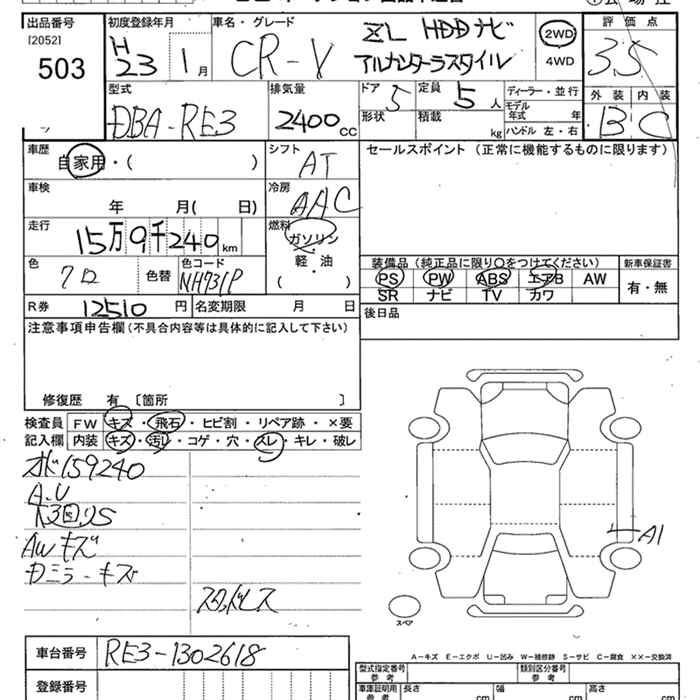 出品番号 初度登録年月 車名・グレード 評価点
[2052] 503 H 23 1月 CR-V ZL HDDナビ 2WD 3.5
アルカンターラスタイル 4WD
外装 内装
B C
型式 排気量 ドア 定員 ディーラー・並行
DBA-RE3 2400cc 5 5人 モデル年式 年
形状 積載 kg ハンドル 左・右
車歴 シフト セールスポイント (正常に機能するものに限ります)
自家用・( ) AT
車検 冷房
年 月( 日) AAC
走行 燃料
15万9千240km ガソリン
軽・油
( )
色 色替 色コード
クロ NH731P
装備品(純正品に限り○をつけてください) 新車保証書
PS PW ABS エアB AW 有・無
SR ナビ TV カワ
R券 12510円 名変期限 月 日
後日品
注意事項申告欄(不具合内容等は具体的に記入して下さい)
修復歴 有 〔箇所 〕
検査員 FW キズ・飛石・ヒビ割・リペア跡・×要
記入欄 内装 キズ・汚レ・コゲ・穴・スレ・キレ・破レ
オド159240
A.U
AWキズ
Fミラーキズ
A1
スペア
車台番号 RE3-1302618
登録番号
A-キズ E-エクボ U-凹み W-補修跡 S-サビ C-腐食 ××-交換済
型式指定番号 参考 類別区分番号 参考
車庫証明用 参考 長さ cm 幅 cm 高さ cm